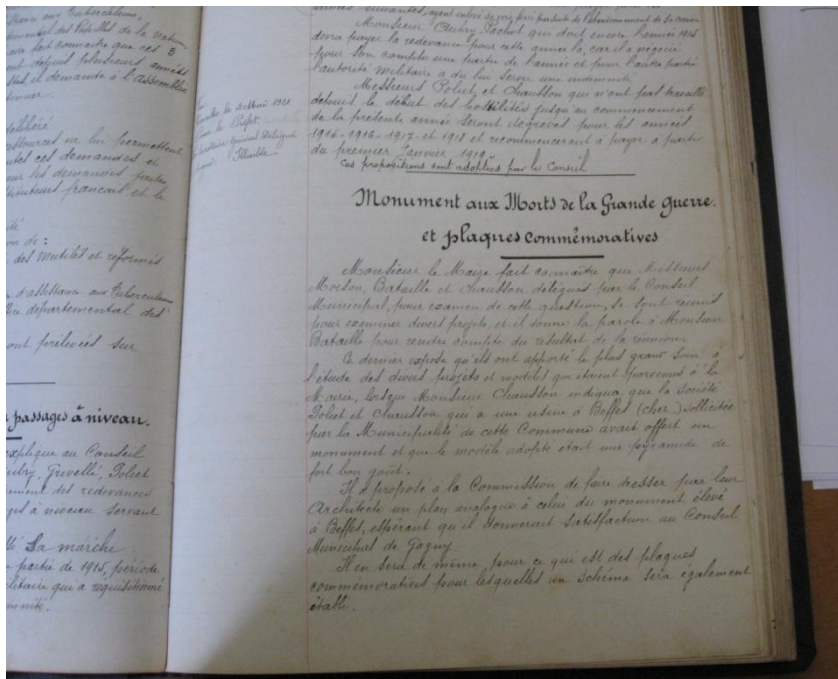 aux Tuberculeux,
Pupilles de la Nation
fait connaître que ces 3
ont depuis plusieurs années
il demande à l'assemblée
délibéré
ressources ne lui permettent
ces demandes et
les demandes
français et le
on de :
des Mutilés et réformés
d'assistance aux Tuberculeux
départemental des
ont prélevées sur
passages à niveau.
explique au Conseil
Aubry, Grevellé, Poliet
des redevances
à niveau servant
La marche
partie de 1915, période
militaire qui a réquisitionné
le 2 Mai 1921
le Préfet
Secrétaire Général Délégué
Monsieur Aubry Pachot qui doit encore l'année 1915
devra payer la redevance pour cette année là, car il a négocié
pour son compte une partie de l'année et pour l'autre partie
l'autorité militaire a dû lui servir une indemnité.
Messieurs Poliet et Chausson qui n'ont pas travaillé
depuis le début des hostilités jusqu'au commencement
de la présente année seront dégrevés pour les années
1915-1916-1917 et 1918 et recommenceront à payer à partir
du premier Janvier 1919.
Ces propositions sont adoptées par le Conseil
Monument aux Morts de la Grande Guerre.
et plaques commémoratives
Monsieur le Maire fait connaître que Messieurs
Moison, Bataille et Chausson délégués par le Conseil
Municipal, pour examen de cette question, se sont réunis
pour examiner divers projets et il donne la parole à Monsieur
Bataille pour rendre compte du résultat de la réunion.
Ce dernier expose qu'ils ont apporté le plus grand soin à
l'étude des divers projets et modèles qui étaient parvenus à la
Mairie, lorsque Monsieur Chausson indiqua que la Société
Poliet et Chausson qui a une usine à Beffes (cher.) sollicitée
par la Municipalité de cette Commune avait offert un
monument et que le modèle adopté était une pyramide de
fort bon goût.
Il a proposé à la Commission de faire dresser par leur
Architecte un plan analogue à celui du monument élevé
à Beffes, espérant qu'il donnerait satisfaction au Conseil
Municipal de Gagny
Il en sera de même, pour ce qui est des plaques
commémoratives pour lesquelles un schéma sera également
établi.